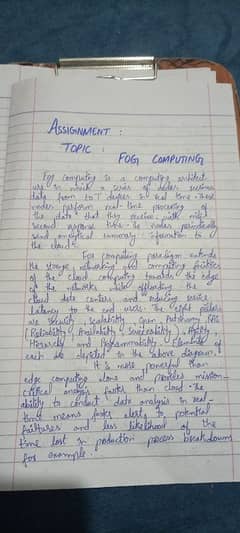 ASSIGNMENT :
TOPIC :
FOG COMPUTING
Fog computing is a computing architect
ure in which a series of nodes receives
data from IoT devices in real time. These
nodes perform real-time processing of
the data that they receive, with milli
second response time. The nodes periodically
send analytical summary information to
the cloud.
Fog computing paradigm extends
the storage, networking and computing facilities
of the cloud computing towards the edge
of the networks while offloading the
cloud data centers and reducing service
latency to the end users. The eight pillars
are security, Scalability, Open, Autonomy, RAS
Reliability, Availability, Serviceability), Agility,
Hierarchy and Programmability. Elements of
each are depicted in the above diagram.
It is more powerful than
edge computing alone and provides mission-
critical analysis faster than cloud. The
ability to conduct data analysis in real-
time means faster alerts to potential
failures and less likelihood of the
time lost in production process breakdowns
for example.